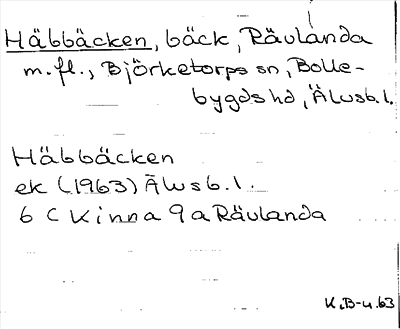 Häbbäcken, bäck, Rävlanda
m.fl., Björketorps sn, Bolle-
bygds hd, Älvsb.l.
Häbbäcken
ek (1963) Älvsb.l.
6 C Kinna 9a Rävlanda
K.B-u.63